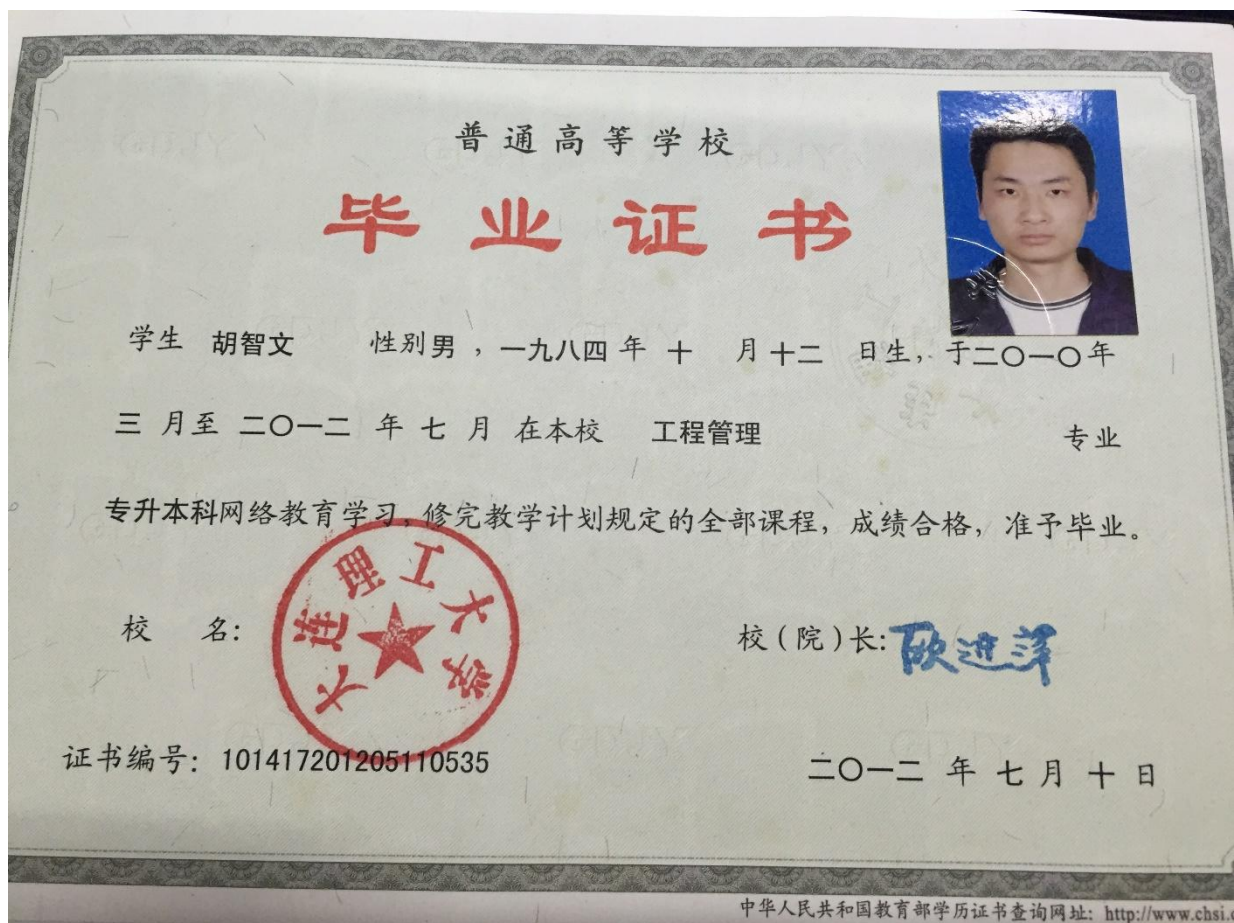 普通高等学校
毕业证书
学生 胡智文 性别男，一九八四年 十 月十二 日生，于二〇一〇年
三 月至 二〇一二 年 七 月 在本校 工程管理 专业
专升本科网络教育学习，修完教学计划规定的全部课程，成绩合格，准予毕业。
大连理工大学
校 名：
校（院）长：欧进萍
证书编号：101417201205110535
二〇一二 年 七 月 十 日
中华人民共和国教育部学历证书查询网址：http://www.chsi.c